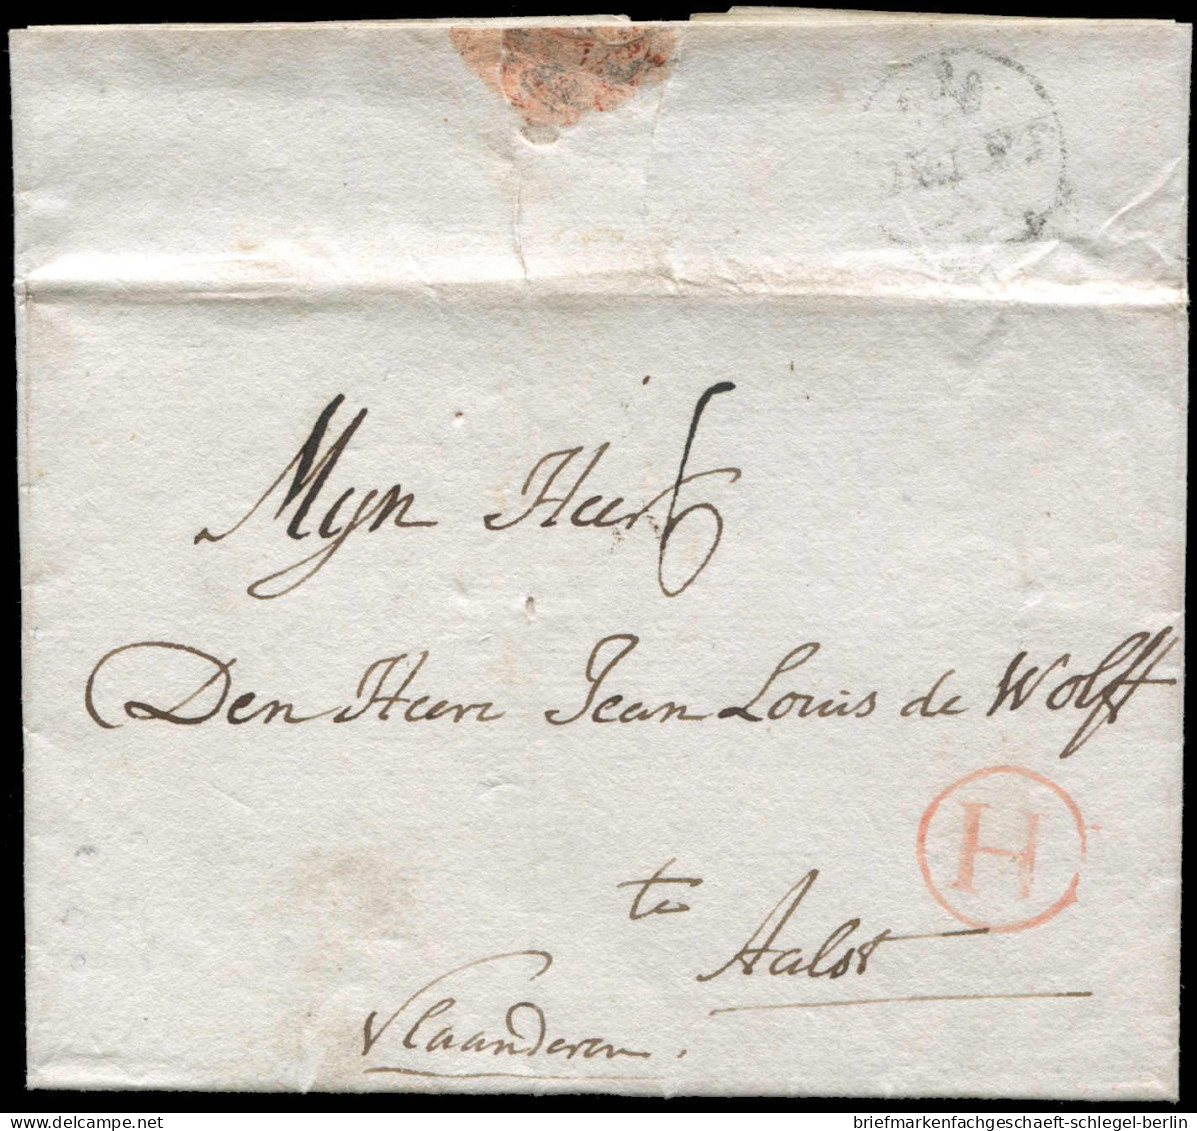 Myn Heer
6
Den Heere Jean Louis de Wolff
H
te
Aalst
Vlaanderen.
briefmarkenfachgeschaeft-schlegel-berlin